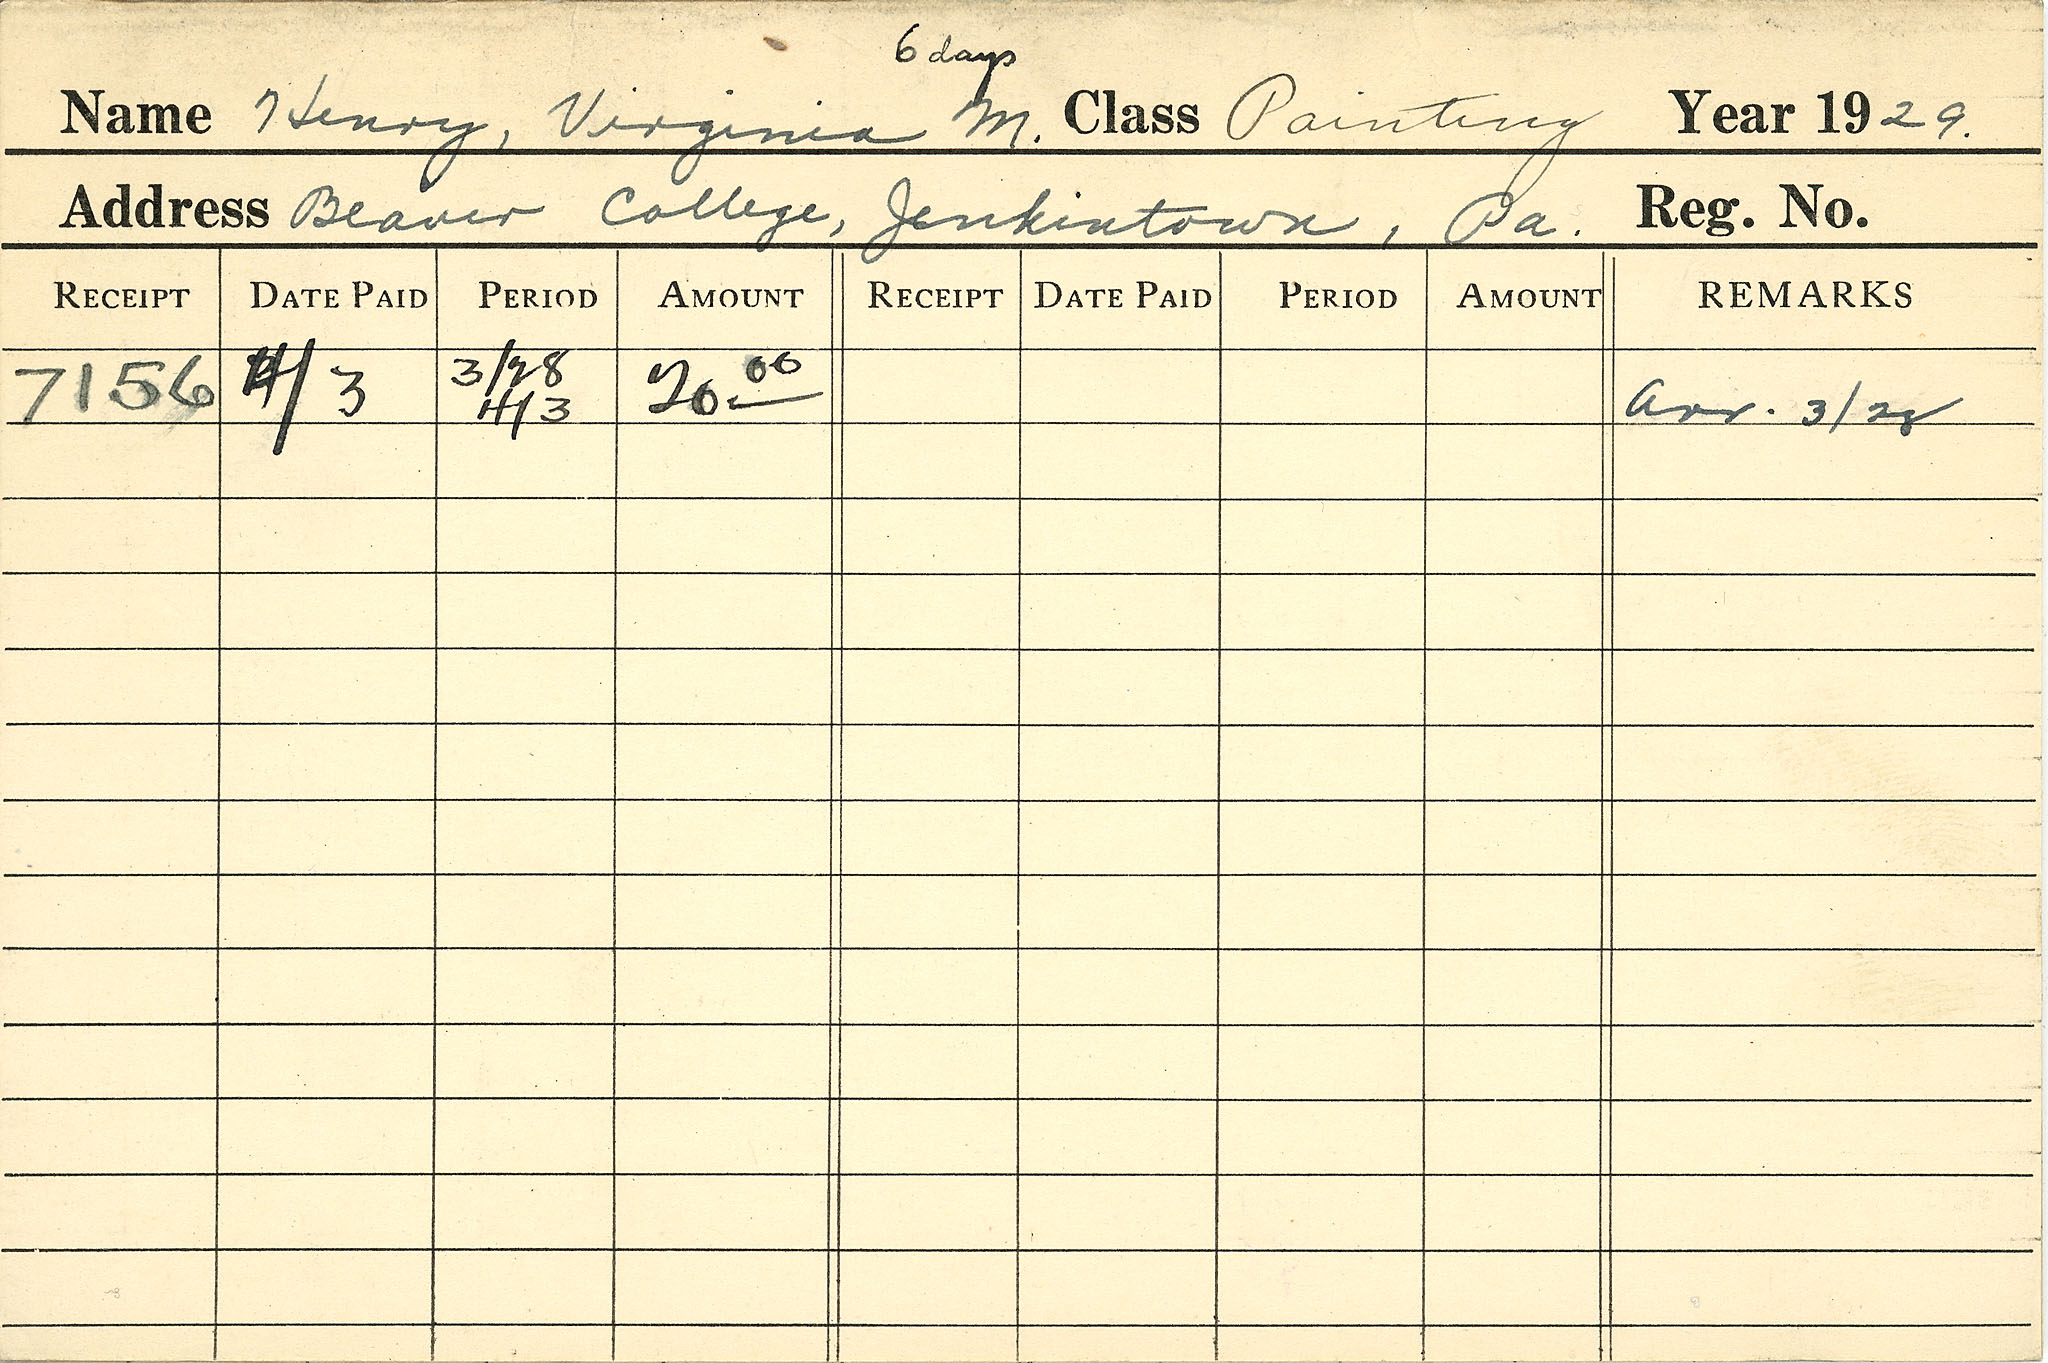 6 days
Name Henry, Virginia M. Class Painting Year 1929.
Address Beaver College, Jenkintown, Pa. Reg. No.
RECEIPT DATE PAID PERIOD AMOUNT RECEIPT DATE PAID PERIOD AMOUNT REMARKS
7156 4/3 3/28 20.00 Arr. 3/28
4/3